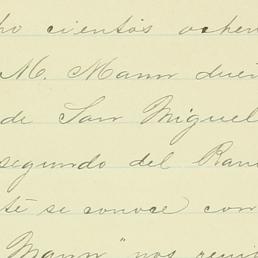 ho cientos ochen
M. Mann dueñ
de San Miguel
segundo del Ran
te se conoce con
Mann" nos reuni